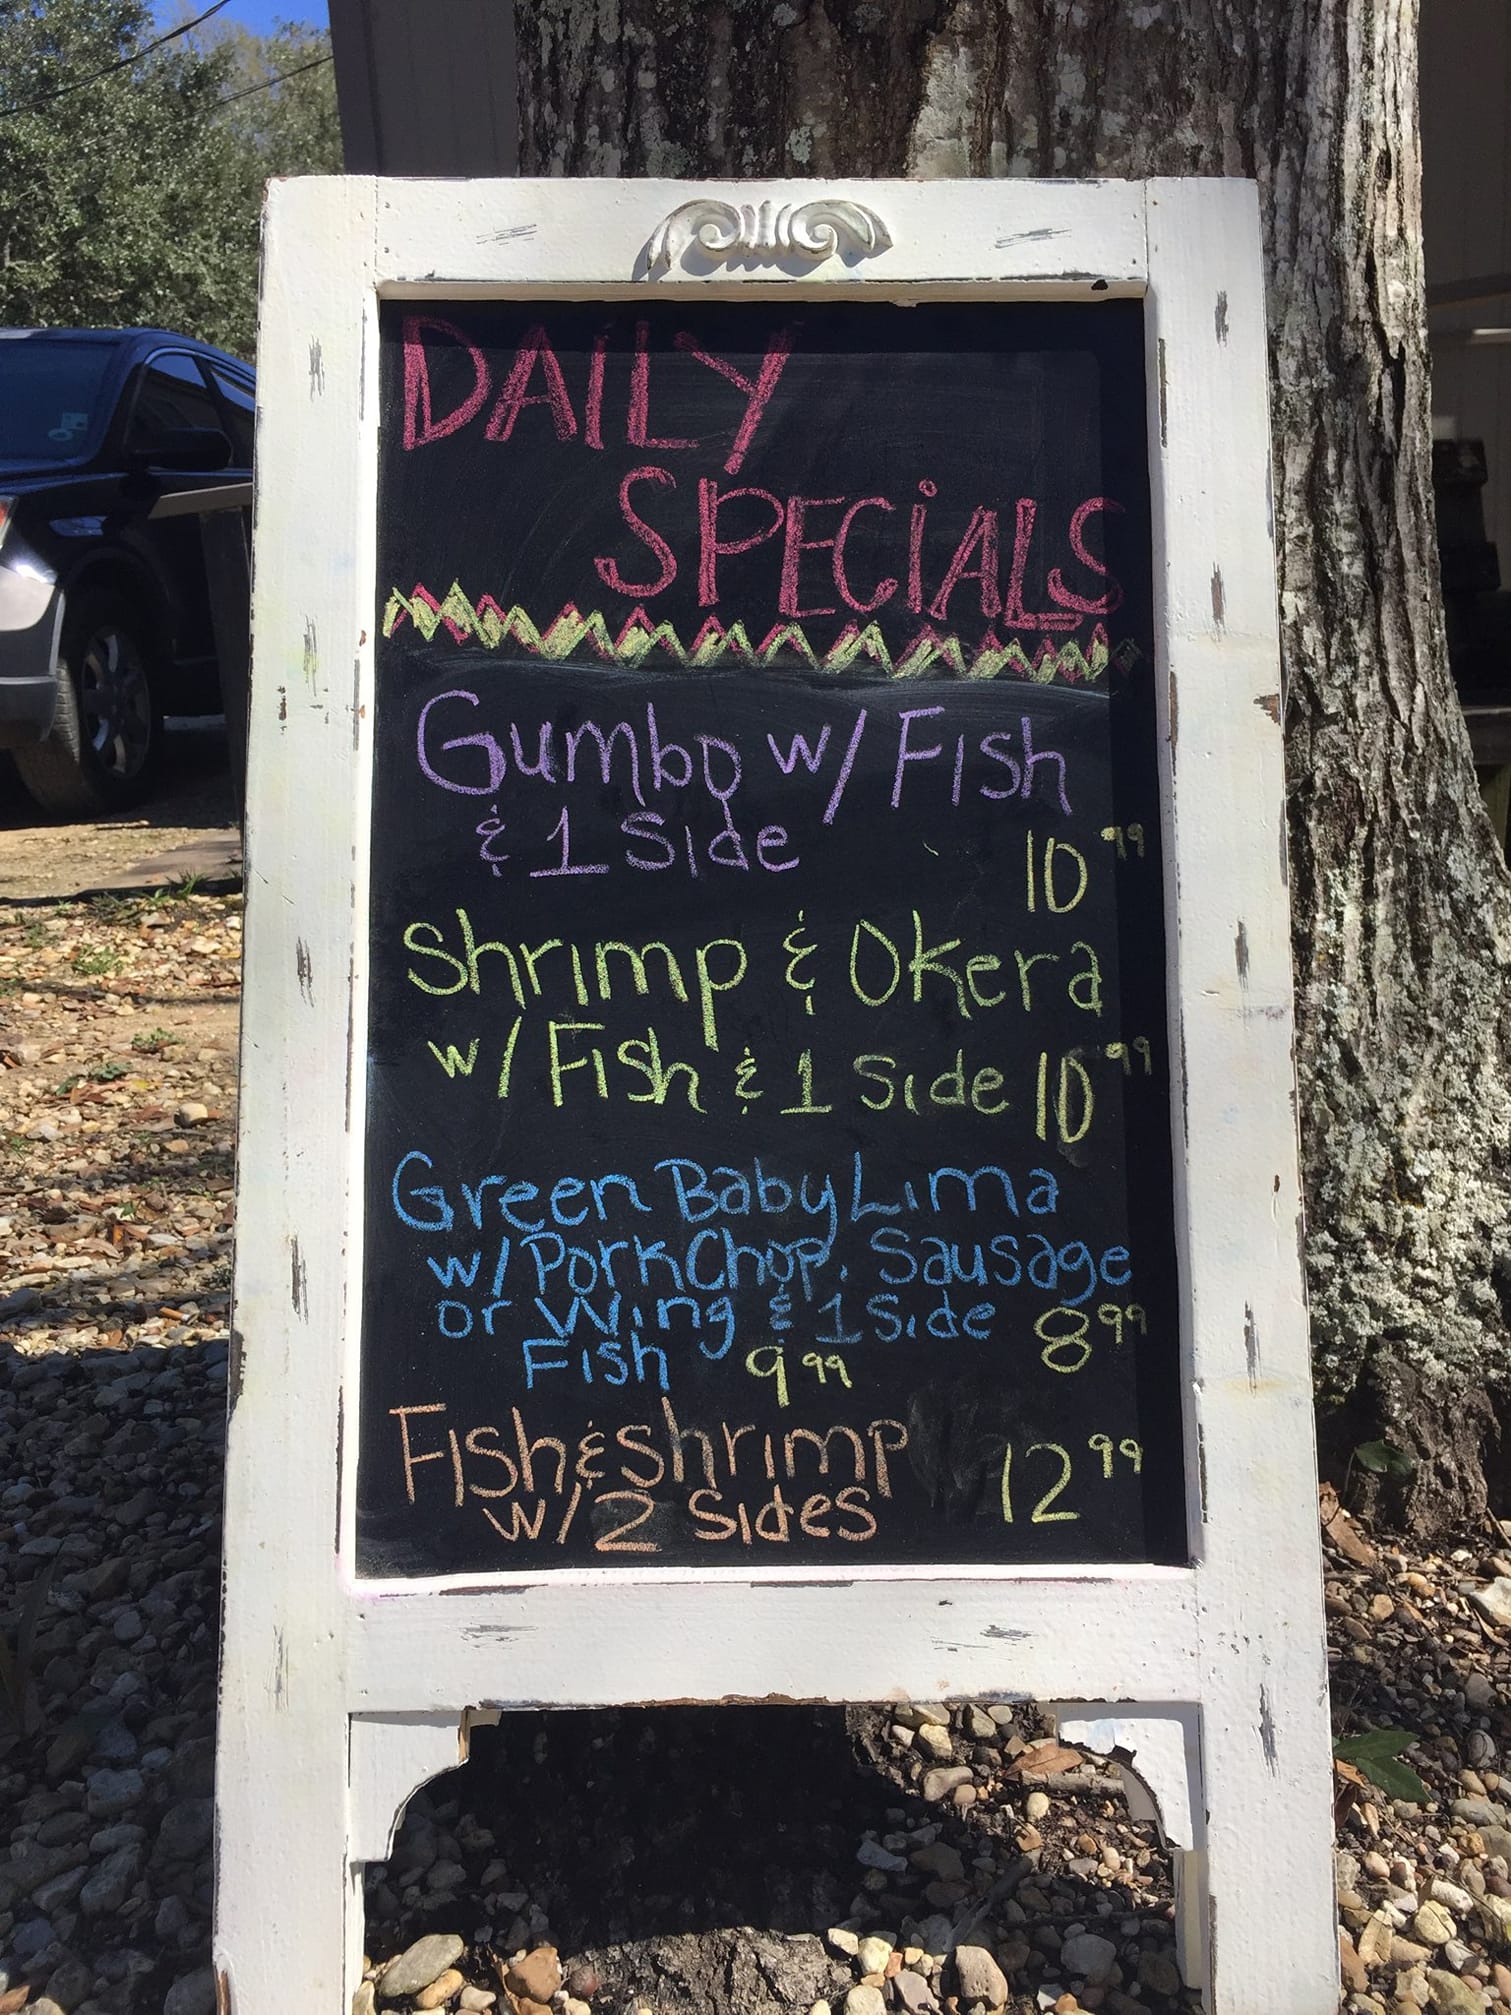 DAILY
SPECiALS
Gumbo w/ Fish
& 1 Side
10.99
Shrimp & Okera
w/ Fish & 1 Side 10.99
Green Baby Lima
w/ Pork Chop, Sausage
or Wing & 1 Side 8.99
Fish 9.99
Fish & Shrimp 12.99
w/ 2 Sides